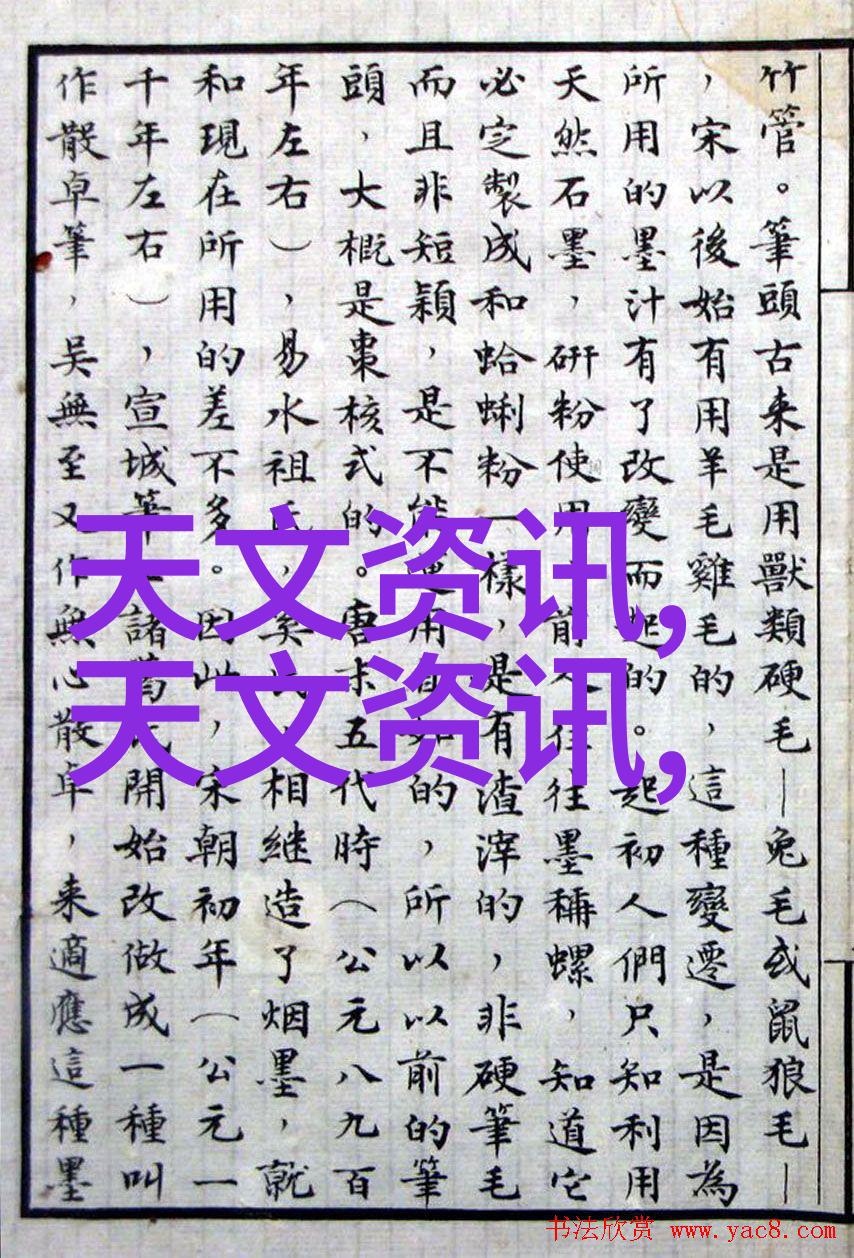 竹管。筆頭古来是用獸類硬毛—兔毛或鼠狼毛—
，宋以後始有用羊毛雞毛的，這種變遷，是因為
所用的墨汁有了改變而起的。起初人們只知利用
天然石墨，研粉使用，前人往往墨稱螺，知道它
必定製成和蛤蜊粉一樣，是有渣滓的，非硬筆毛
而且非短穎，是不能運用自如的，所以以前的筆
頭，大概是棗核式的。唐末五代時（公元八九百
年左右），易水祖氏，奚氏，相继造了烟墨，就
和現在所用的差不多。因此，宋朝初年（公元一
千年左右），宣城筆諸葛氏開始改做成一種叫
作散卓筆，吳無至又作無心散卓，来適應這種墨
天文资讯,
天文资讯,
书法欣赏 www.yac8.com